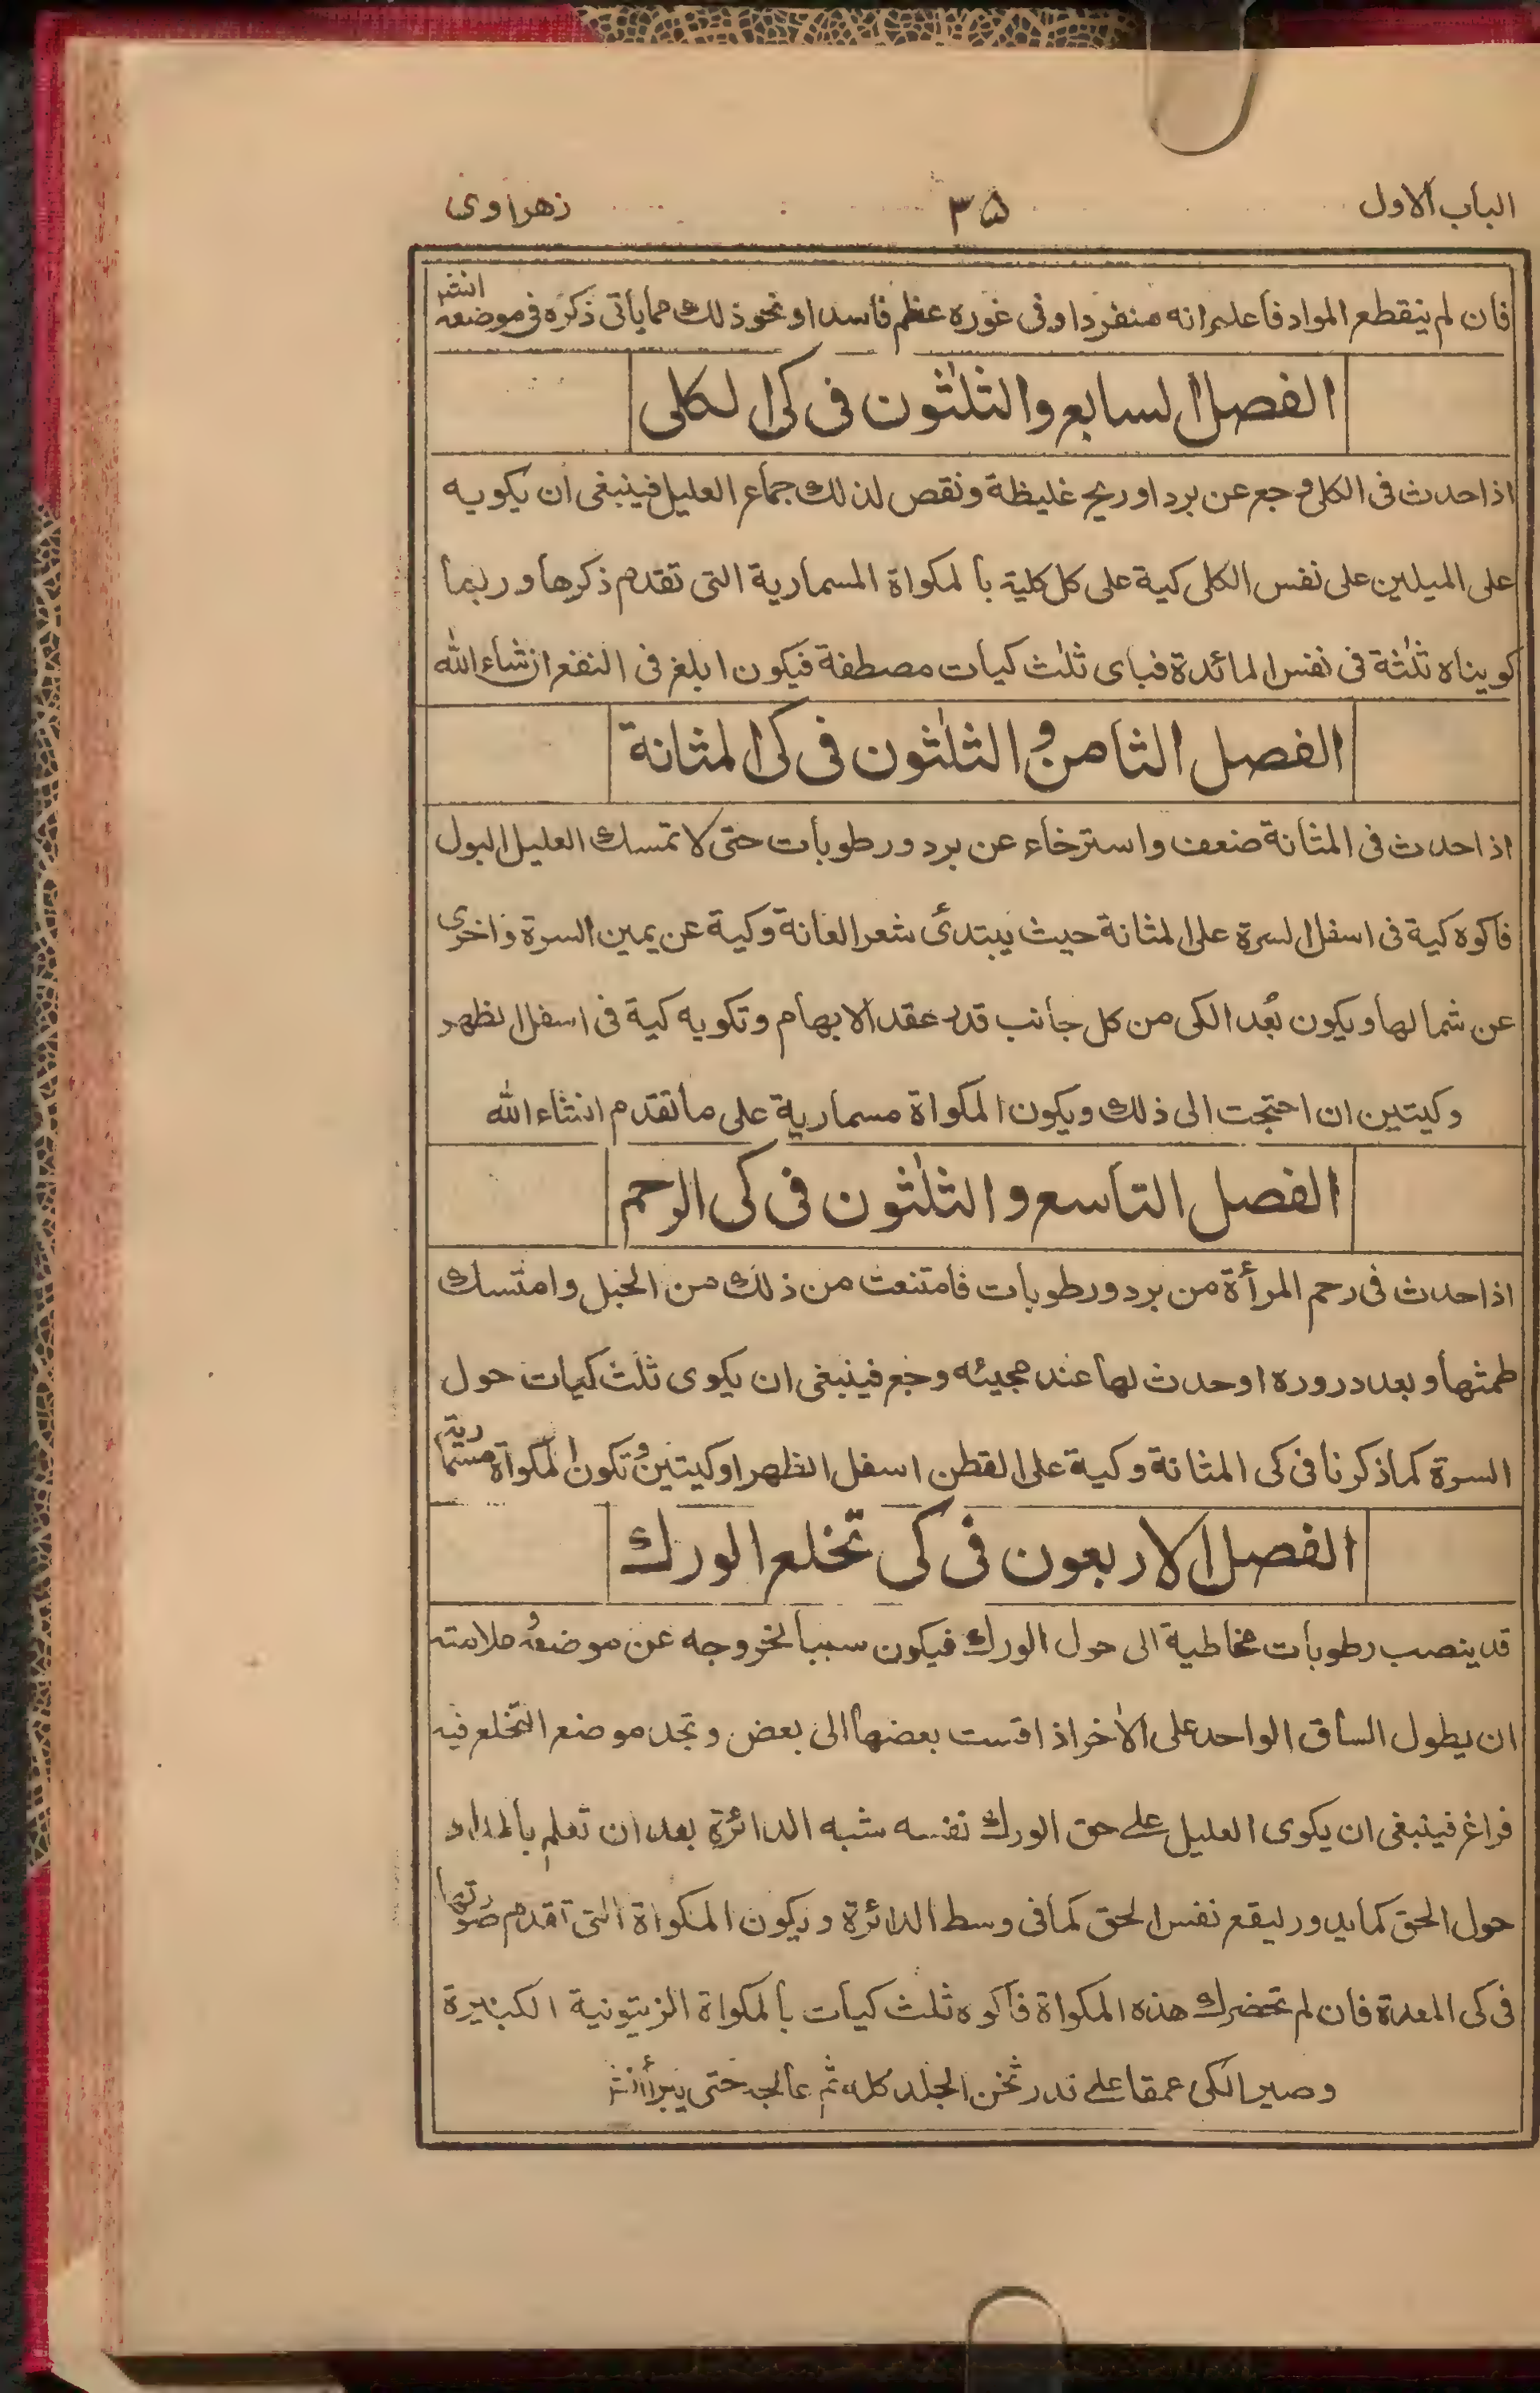 الباب الاول ۳۵ زهراوی
فان لم ينقطع المواد فاعلم انه منفردا وفى غوره عظم فاسد او نحو ذلك مما يأتى ذكره فى موضعه انشر
الفصل السابع والثلثون فى كى الكلى
اذا حدث فى الكلى وجع عن برد او ريح غليظة ونقص لذلك جماع العليل فينبغى ان يكويه
على الميلين على نفس الكلى كية على كل كلية بالمكواة المسمارية التى تقدم ذكرها وربما
كويناه ثلثة فى نفس المائدة فباى ثلث كيات مصطفة فيكون ابلغ فى النفع انشاء الله
الفصل الثامن والثلثون فى كى المثانة
اذا حدث فى المثانة ضعف واسترخاء عن برد ورطوبات حتى لا تمسك العليل البول
فاكوه كية فى اسفل السرة على المثانة حيث يبتدئ شعر العانة وكية عن يمين السرة واخرى
عن شمالها ويكون بُعد الكى من كل جانب قدر عقد الابهام وتكويه كية فى اسفل الظهر
وكيتين ان احتجت الى ذلك ويكون المكواة مسمارية على ما تقدم انشاء الله
الفصل التاسع والثلثون فى كى الرحم
اذا حدث فى رحم المرأة من برد ورطوبات فامتنعت من ذلك من الحبل وامتسك
طمثها وبعد دروره او حدث لها عند مجيئه وجع فينبغى ان يكوى ثلث كيات حول
السرة كما ذكرنا فى كى المثانة وكية على القطن اسفل الظهر او كيتين وتكون المكواة مسمارية
الفصل الاربعون فى كى تخلع الورك
قد ينصب رطوبات مخاطية الى حول الورك فيكون سببا لخروجه عن موضعه وملامته
ان يطول الساق الواحد على الاخر اذا قست بعضها الى بعض وتجد موضع التخلع فيه
فراغ فينبغى ان يكوى العليل على حق الورك نفسه شبه الدائرة بعد ان تعلم بالمداد
حول الحق كما يدور ليقع نفس الحق كما فى وسط الدائرة ويكون المكواة التى تقدم صورتها
فى كى المعدة فان لم تحضرك هذه المكواة فاكوه ثلث كيات بالمكواة الزيتونية الكبيرة
وصير الكى عمقا على قدر ثخن الجلد كله ثم عالجه حتى يبرأ انشر